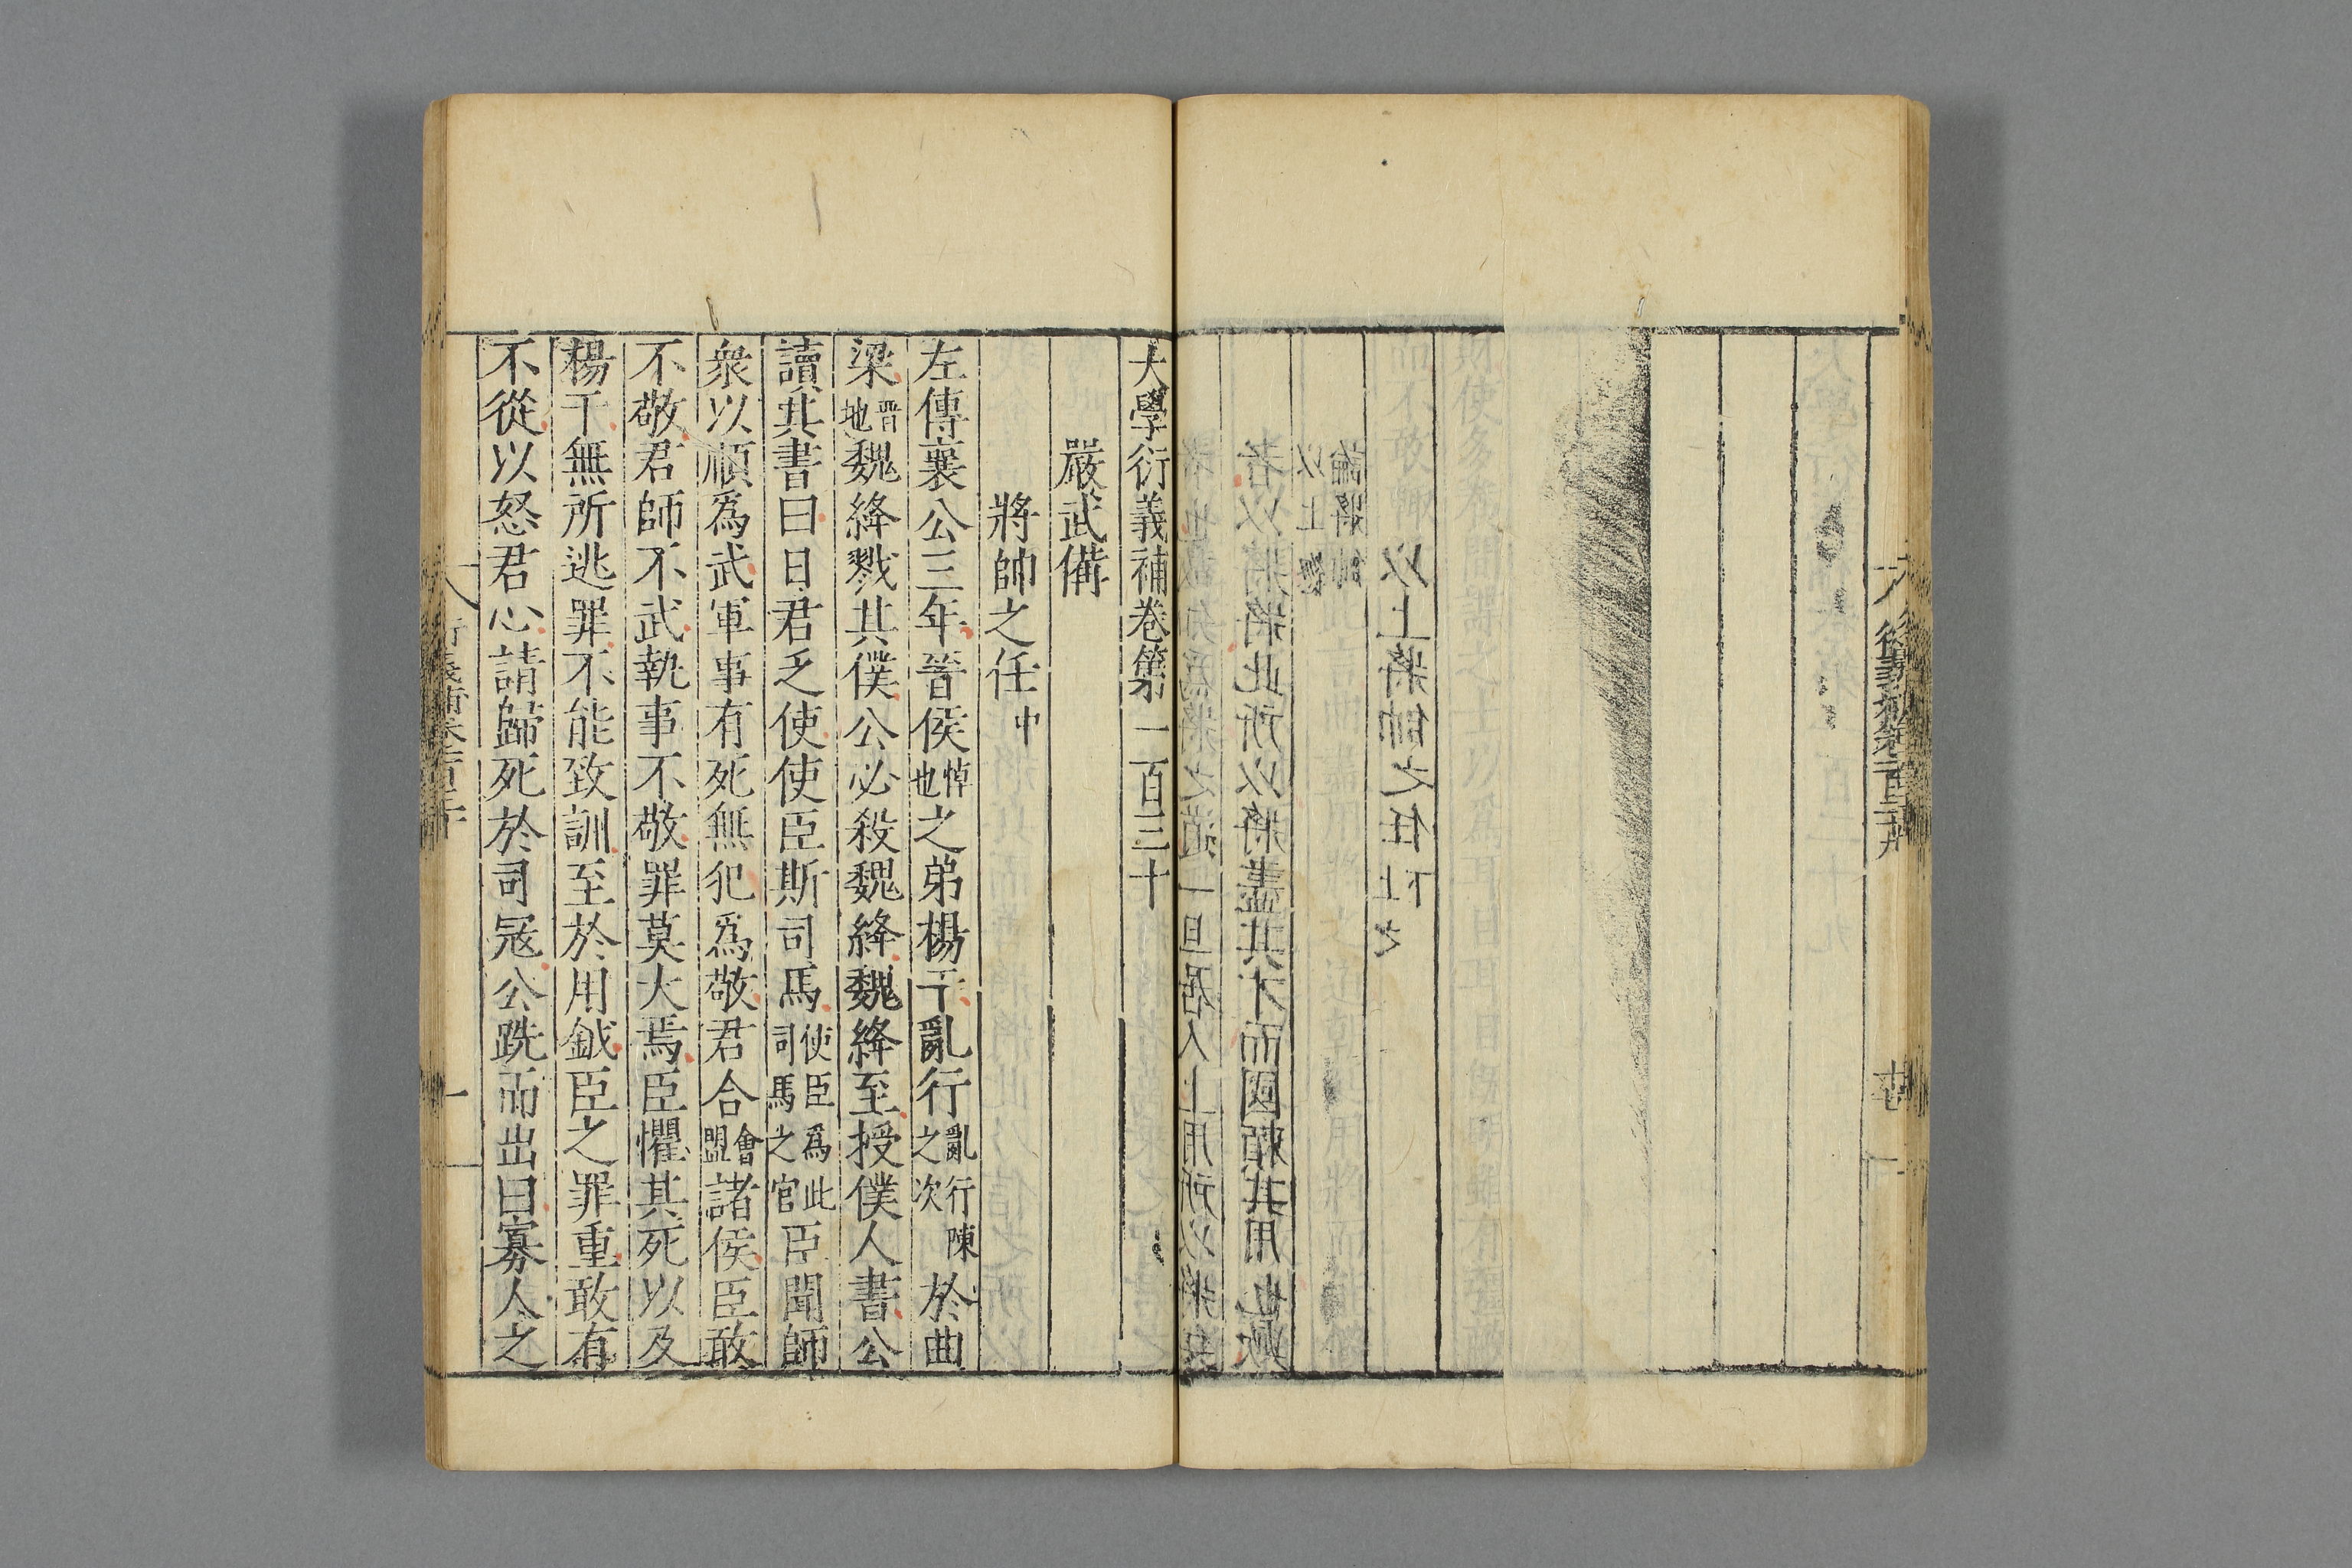 者以將將此所以將盡其才而國賴其用也歟
以上總
論將帥
以上將帥之任上之下
大學衍義補卷第一百三十
嚴武備
將帥之任中
左傳襄公三年晉侯悼也之弟楊干亂行亂行陳之次於曲
梁晉地魏絳戮其僕公必殺魏絳魏絳至授僕人書公
讀其書曰日君乏使使臣斯司馬使臣爲此司馬之官臣聞師
衆以順爲武軍事有死無犯爲敬君合會盟諸侯臣敢
不敬君師不武執事不敬罪莫大焉臣懼其死以及
楊干無所逃罪不能致訓至於用鉞臣之罪重敢有
不從以怒君心請歸死於司冦公跣而出曰寡人之